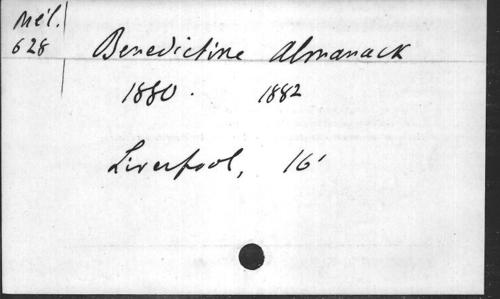 Mél.
628
Benedictine Almanack
1880. 1882
Liverpool, 16'